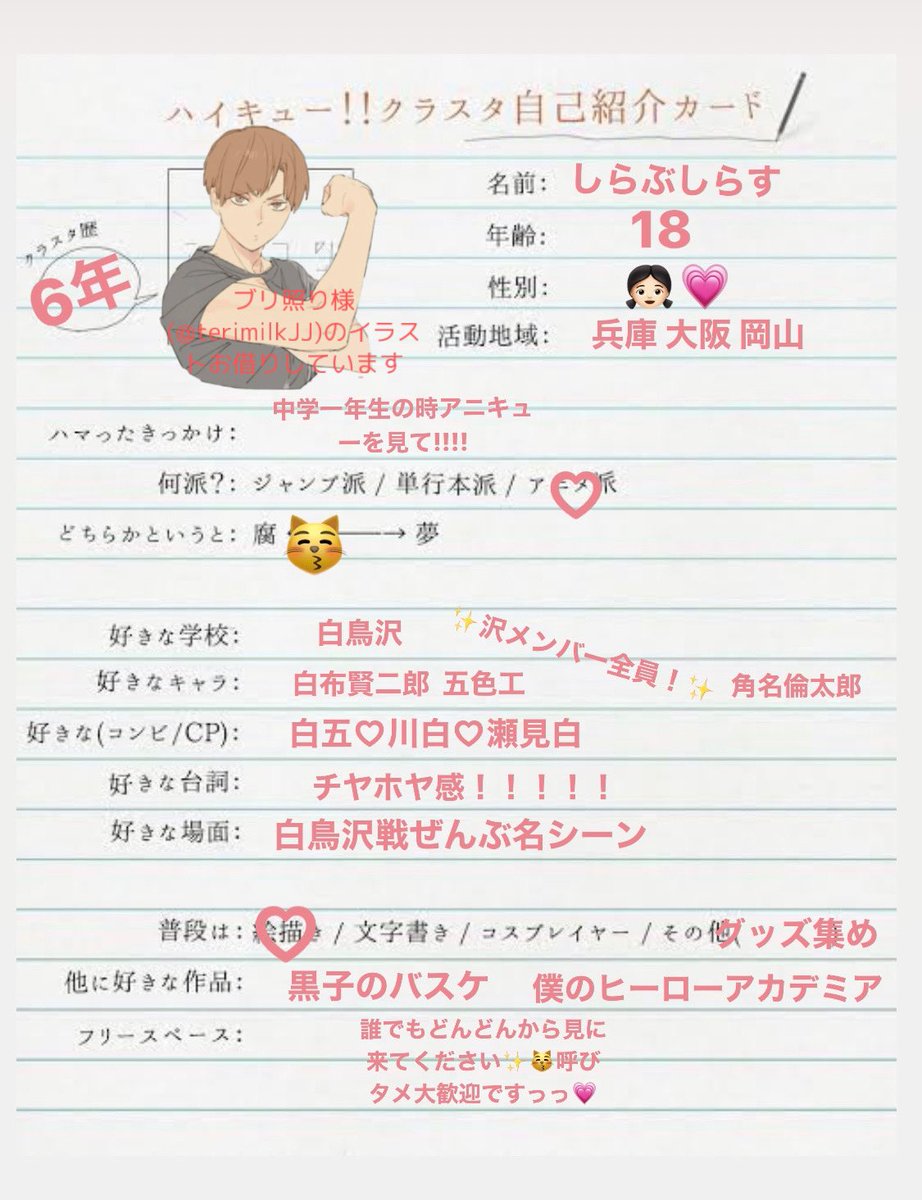 ハイキュー!!クラスタ自己紹介カード
クラスタ歴
6年
ブリ照り様
(@terimilkJJ)のイラス
トお借りしています
名前: しらぶしらす
年齢: 18
性別: 👧🏻💗
活動地域: 兵庫 大阪 岡山
ハマったきっかけ: 中学一年生の時アニキュ
ーを見て!!!!
何派?: ジャンプ派 / 単行本派 / アニメ派
どちらかというと: 腐 😽 → 夢
好きな学校: 白鳥沢
✨沢メンバー全員！✨
好きなキャラ: 白布賢二郎 五色工 角名倫太郎
好きな(コンビ/CP): 白五♡川白♡瀬見白
好きな台詞: チヤホヤ感！！！！！
好きな場面: 白鳥沢戦ぜんぶ名シーン
普段は: 絵描き / 文字書き / コスプレイヤー / その他( グッズ集め
他に好きな作品: 黒子のバスケ 僕のヒーローアカデミア
フリースペース: 誰でもどんどんから見に
来てください✨😽呼び
タメ大歓迎ですっっ💗